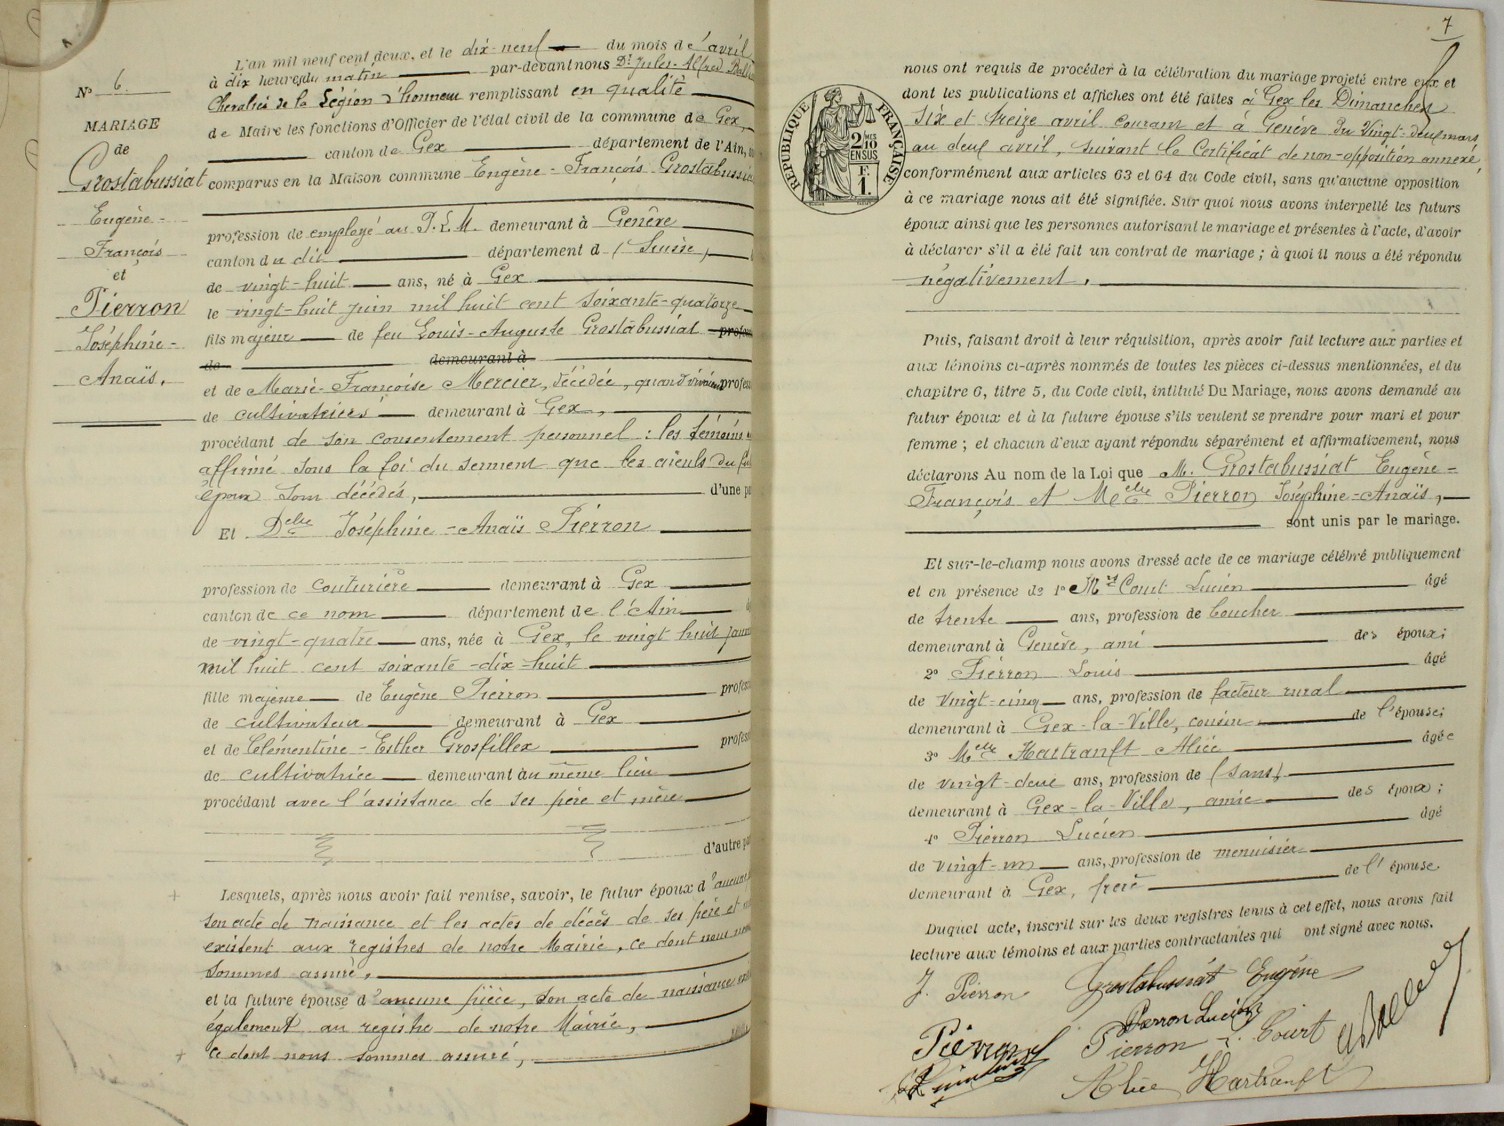 Nº 6
MARIAGE
de
Grostabussiat
Eugène-
François
et
Pierron
Joséphine-
Anaïs.
L'an mil neuf cent deux, et le dix-neuf du mois d'avril
à dix heures du matin par-devant nous Dr Jules-Alfred
Chevalier de la Légion d'honneur remplissant en qualité
de Maire les fonctions d'Officier de l'état civil de la commune de Gex,
canton de Gex département de l'Ain,
comparus en la Maison commune Eugène-François Grostabussiat
profession de employé au P.L.M. demeurant à Genève
canton du dit département d (Suisse)
de vingt-huit ans, né à Gex
le vingt-huit juin mil huit cent soixante-quatorze
fils majeur de feu Louis-Auguste Grostabussiat
de demeurant à
et de Marie-Françoise Mercier, décédée, quand vivaient
de cultivatrices demeurant à Gex,
procédant de son consentement personnel : les témoins
affirmé sous la foi du serment que les aïeuls du
époux sont décédés, d'une
Et Delle Joséphine-Anaïs Pierron
profession de couturière demeurant à Gex
canton de ce nom département de l'Ain
de vingt-quatre ans, née à Gex, le vingt huit
mil huit cent soixante-dix-huit
fille majeure de Eugène Pierron
de cultivateur demeurant à Gex
et de Clémentine-Esther Grosfillex
de cultivatrice demeurant au même lieu
procédant avec l'assistance de ses père et mère
d'autre
Lesquels, après nous avoir fait remise, savoir, le futur époux d'aucune
son acte de naissance et les actes de décès de ses père et
existent aux registres de notre Mairie, ce dont nous nous
sommes assuré.
et la future épouse d'aucune pièce, son acte de naissance
également au registre de notre Mairie,
ce dont nous sommes assuré,
7
RÉPUBLIQUE FRANÇAISE
2/10
EN SUS
F.
1.
nous ont requis de procéder à la célébration du mariage projeté entre eux et
dont les publications et affiches ont été faites à Gex les Dimanches
six et treize avril courant et à Genève du vingt-deux mars
au deux avril, suivant le certificat de non-opposition annexé,
conformément aux articles 63 et 64 du Code civil, sans qu'aucune opposition
à ce mariage nous ait été signifiée. Sur quoi nous avons interpellé les futurs
époux ainsi que les personnes autorisant le mariage et présentes à l'acte, d'avoir
à déclarer s'il a été fait un contrat de mariage ; à quoi il nous a été répondu
négativement.
Puis, faisant droit à leur réquisition, après avoir fait lecture aux parties et
aux témoins ci-après nommés de toutes les pièces ci-dessus mentionnées, et du
chapitre 6, titre 5, du Code civil, intitulé Du Mariage, nous avons demandé au
futur époux et à la future épouse s'ils veulent se prendre pour mari et pour
femme ; et chacun d'eux ayant répondu séparément et affirmativement, nous
déclarons Au nom de la Loi que M. Grostabussiat Eugène-
François et Melle Pierron Joséphine-Anaïs,
sont unis par le mariage.
Et sur-le-champ nous avons dressé acte de ce mariage célébré publiquement
et en présence de 1º Mr Court Lucien âgé
de trente ans, profession de boucher
demeurant à Genève, ami des époux;
2º Pierron Louis âgé
de vingt-cinq ans, profession de facteur rural
demeurant à Gex-la-Ville, cousin de l'épouse;
3º Melle Hartranft Alice âgée
de vingt-deux ans, profession de (sans)
demeurant à Gex-la-Ville, amie des époux;
4º Pierron Lucien âgé
de vingt-un ans, profession de menuisier
demeurant à Gex, frère de l'épouse.
Duquel acte, inscrit sur les deux registres tenus à cet effet, nous avons fait
lecture aux témoins et aux parties contractantes qui ont signé avec nous.
J. Pierron Grostabussiat Eugène
Pierron Lucien
Pierron Pierron L. Court
Alice Hartranft